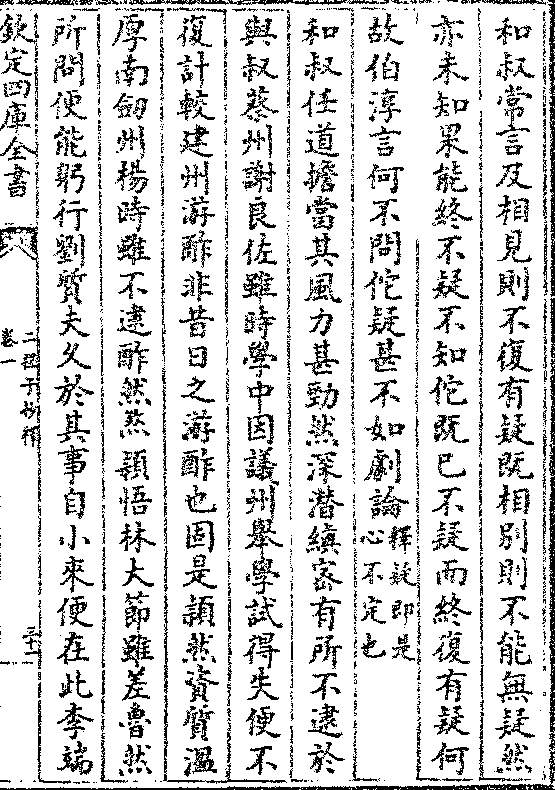 和叔常言及相見則不復有疑既相別則不能無疑然
亦未知果能終不疑不知佗既已不疑而終復有疑何
故伯淳言何不問佗疑甚不如劇論釋疑即是心不定也
和叔任道擔當其風力甚勁然深潛縝宻有所不逮於
與叔蔡州謝良佐雖時學中因議州舉學試得失便不
復計較建州游酢非昔日之游酢也固是頴然資質溫
厚南劒州楊時雖不逮酢然煞頴悟林大節雖差魯然
所問便能躬行劉質夫久於其事自小來便在此李端
欽定四庫全書
二程子抄釋
卷一